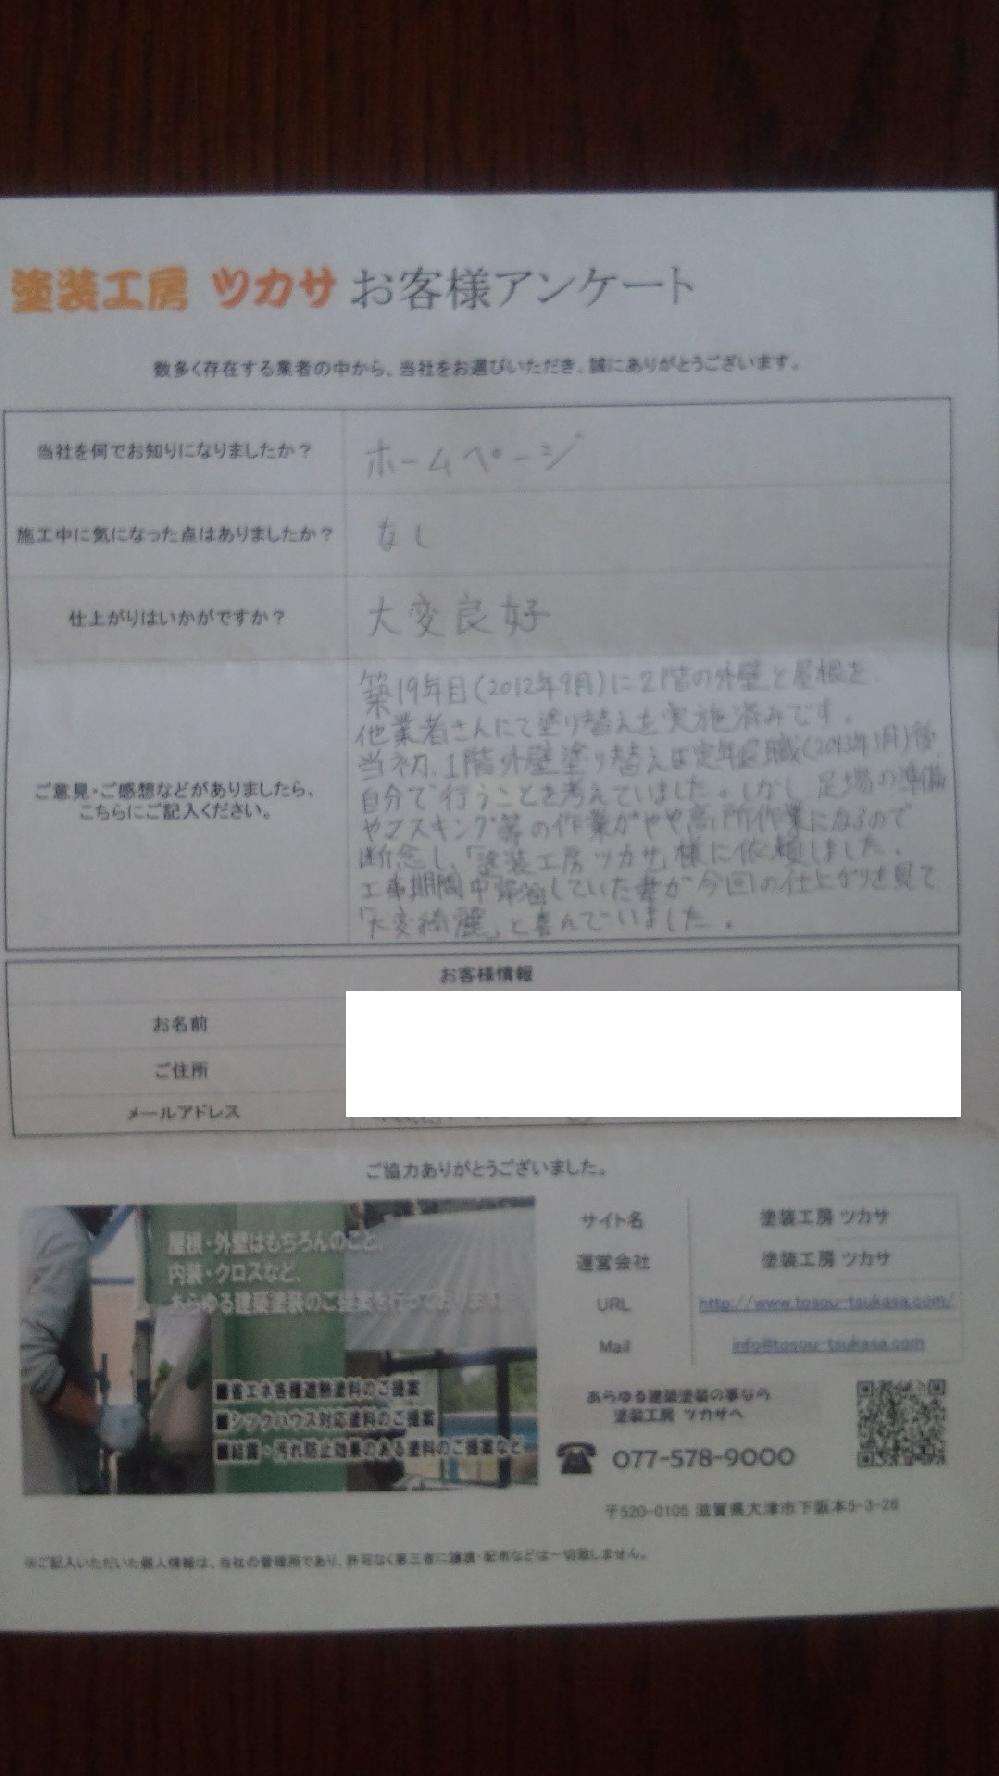 塗装工房 ツカサ お客様アンケート
数多く存在する業者の中から、当社をお選びいただき、誠にありがとうございます。
当社を何でお知りになりましたか？
ホームページ
施工中に気になった点はありましたか？
なし
仕上がりはいかがですか？
大変良好
ご意見・ご感想などがありましたら、
こちらにご記入ください。
築19年目(2012年9月)に2階の外壁と屋根を
他業者さんにて塗り替えを実施済みです。
当初、1階外壁塗り替えは定年退職(2013年3月)後
自分で行うことを考えていました。しかし 足場の準備
やマスキング等の作業がやや高所作業になるので
断念し、「塗装工房ツカサ」様に依頼しました。
工事期間中 していた妻が今回の仕上がりを見て
「大変綺麗」と喜んでいました。
お客様情報
お名前
ご住所
メールアドレス
ご協力ありがとうございました。
屋根・外壁はもちろんのこと、
内装・クロスなど、
あらゆる建築塗装のご提案を行っております
■省エネ各種遮熱塗料のご提案
■シックハウス対応塗料のご提案
■結露・汚れ防止効果のある塗料のご提案など
サイト名 塗装工房 ツカサ
運営会社 塗装工房 ツカサ
URL http://www.tosou-tsukasa.com/
Mail info@tosou-tsukasa.com
あらゆる建築塗装の事なら
塗装工房 ツカサへ
077-578-9000
〒520-0105 滋賀県大津市下阪本5-3-26
※ご記入いただいた個人情報は、当社の管理用であり、許可なく第三者に譲渡・配布などは一切致しません。